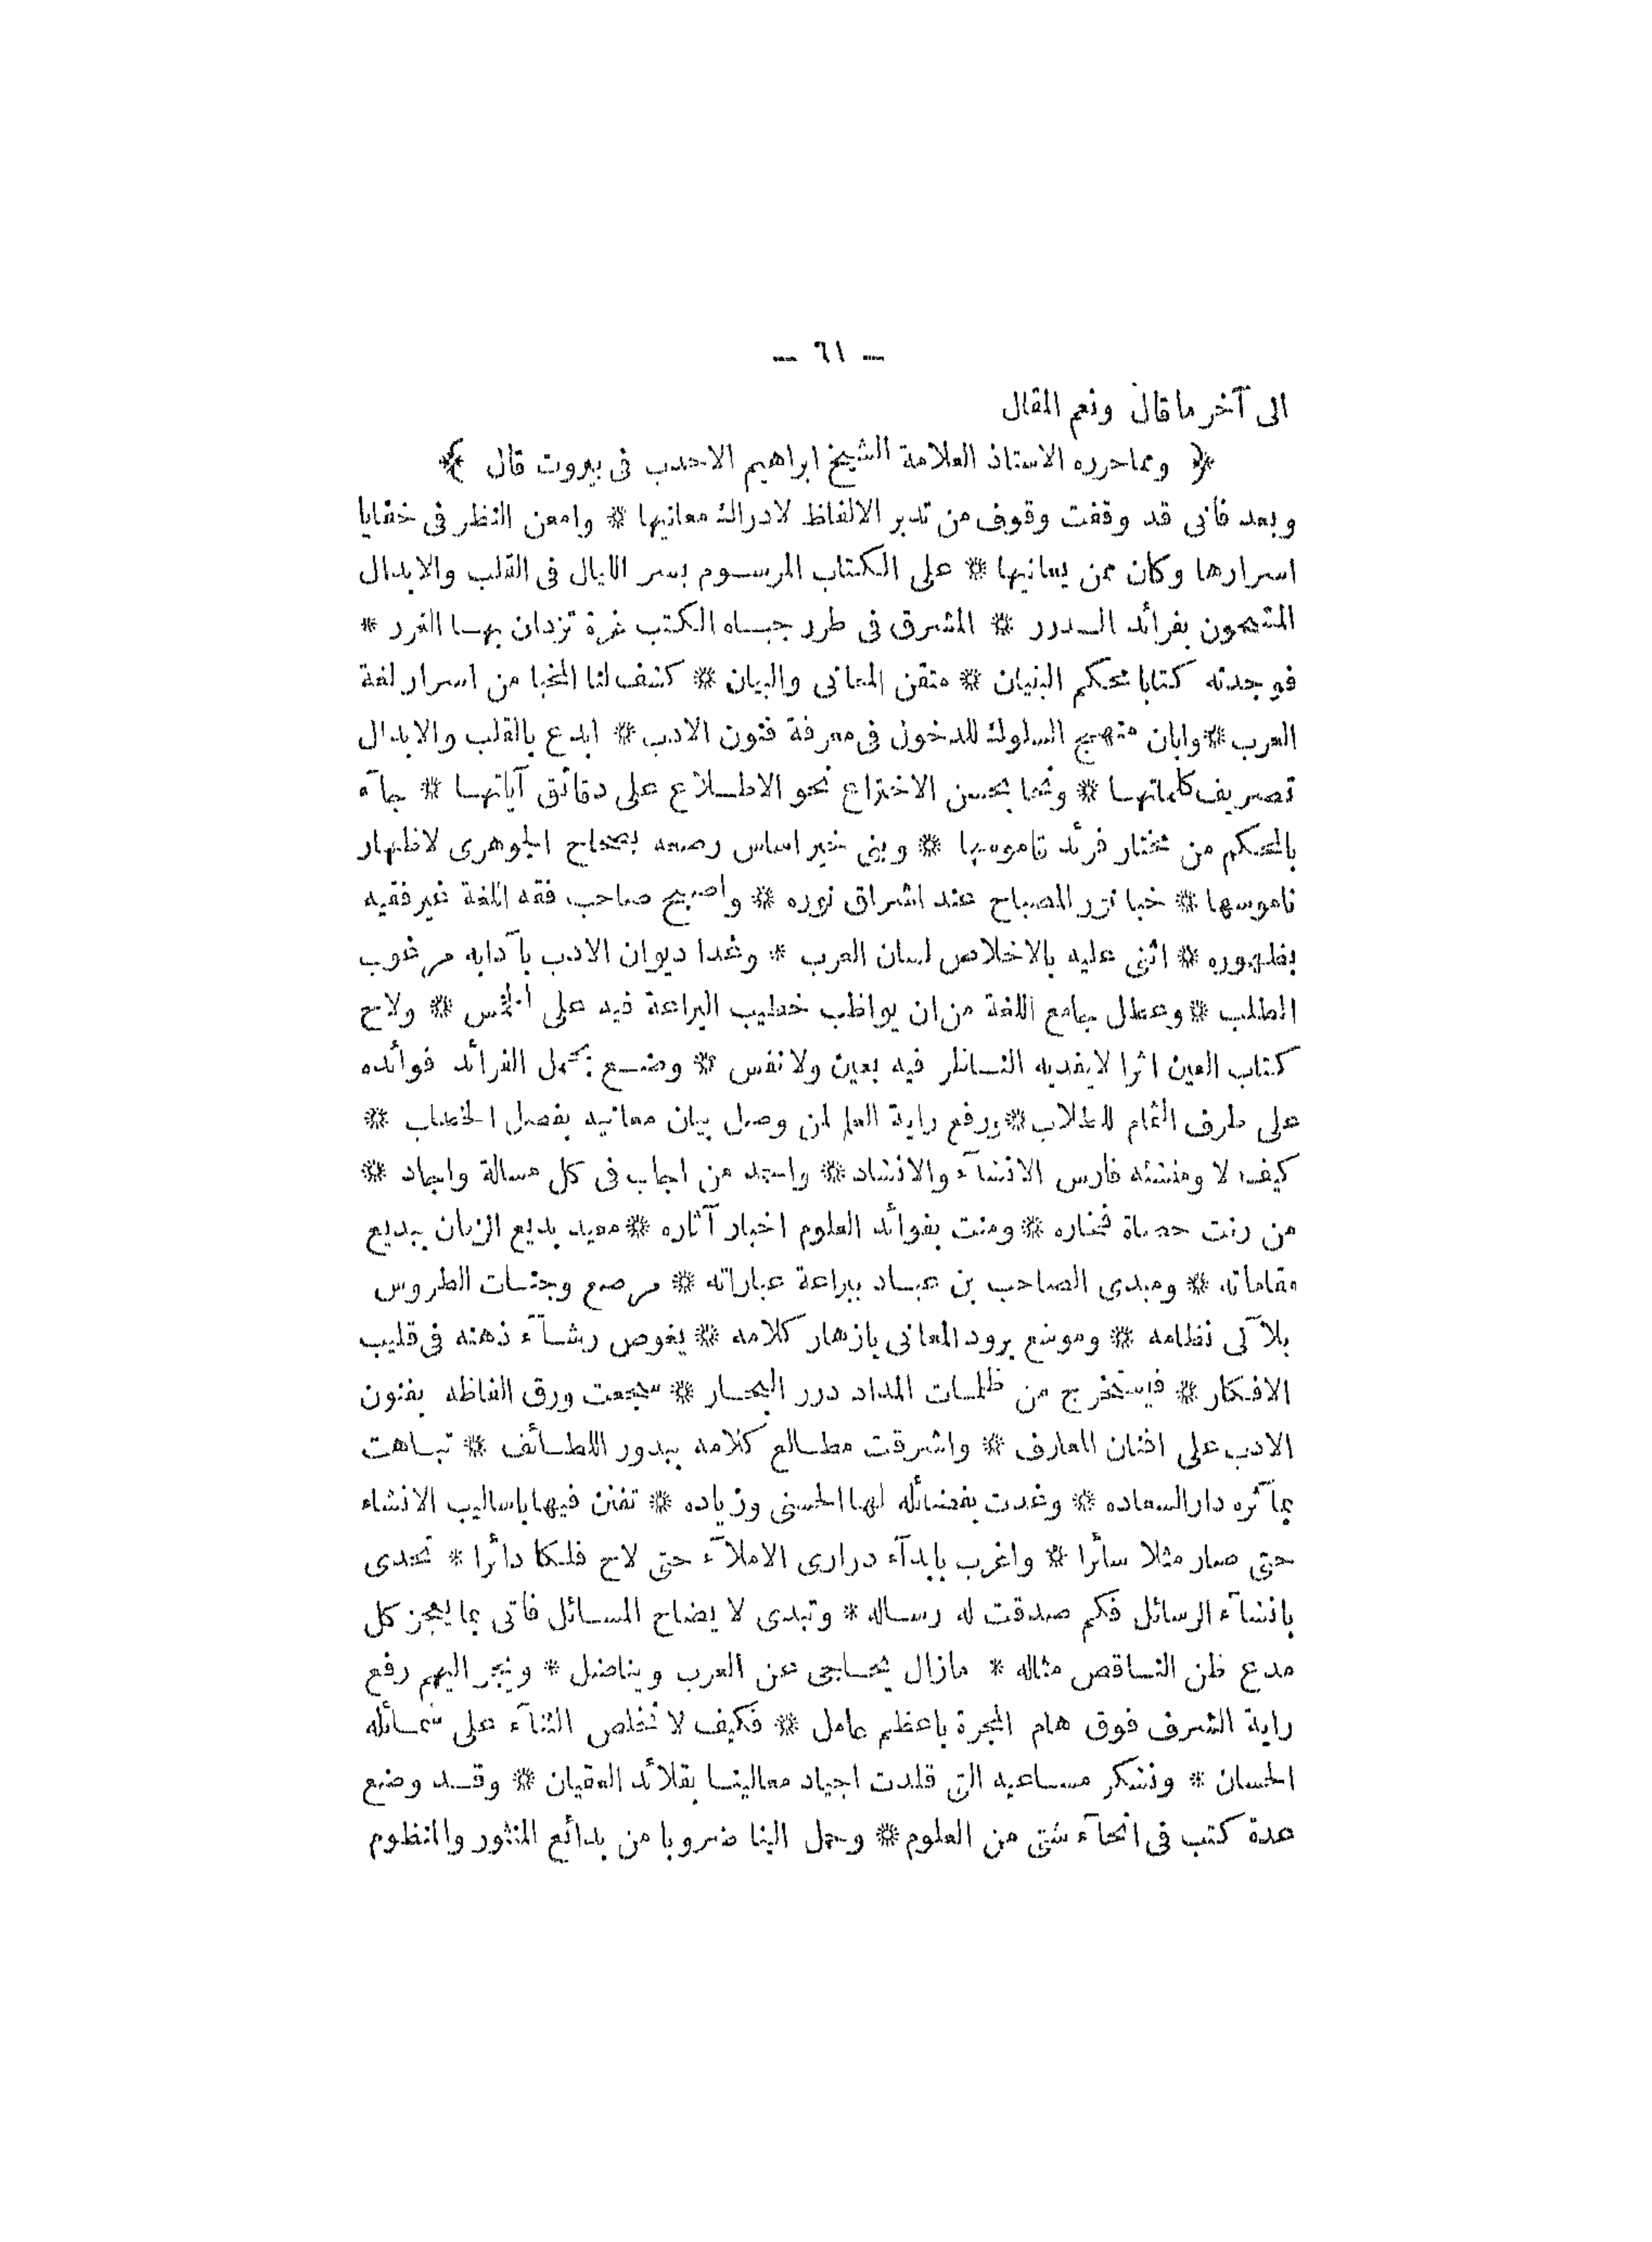 — ٦١ —
الى آخر ما قال ونعم المقال
﴿ ومما حرره الاستاذ العلامة الشيخ ابراهيم الاحدب فى بيروت قال ﴾
وبعد فأنى قد وقفت وقوف من تدبر الالفاظ لادراك معانيها * وامعن النظر فى خفايا
اسرارها وكان ممن يعانيها * على الكتاب المرسوم بسر الليال فى القلب والابدال
المشحون بفرائد الدرر * المشرق فى طرر جباه الكتب غرة تزدان بها الغرر *
فوجدته كتابا محكم البنيان * متقن المعانى والبيان * كشف لنا المخبا من اسرار لغة
العرب * وابان منهج السلوك للدخول فى معرفة فنون الادب * ابدع بالقلب والابدال
تصريف كلماتها * ونحا بحسن الاختراع نحو الاطلاع على دقائق آياتها * جآء
بالمحكم من مختار فرئد قاموسها * وبنى خير اساس رصعه بصحاح الجوهرى لاظهار
ناموسها * خبا نور المصباح عند اشراق نوره * واصبح صاحب فقه اللغة غير فقيه
بظهوره * اثنى عليه بالاخلاص لسان العرب * وغدا ديوان الادب بآدابه مرغوب
الطلب * وعطل جامع اللغة من ان يواظب خطيب البراعة فيه على الخمس * ولاح
كتاب العين اثرا لا يفديه الناظر فيه بعين ولا نفس * وضع بمجمل الفرائد فوائده
على طرف الثمام للطلاب * ورفع راية العلم لمن وصل بيان معانيه بفصل الخطاب *
كيف لا ومنشئه فارس الانشآء والانشاد * واحمد من اجاب فى كل مسالة واجاد *
من رنت حصاة فخاره * ومنت بفوائد العلوم اخبار آثاره * معيد بديع الزمان ببديع
مقاماته * ومبدى الصاحب بن عباد ببراعة عباراته * مرصع وجنات الطروس
بلآلى نظامه * وموشع برود المعانى بازهار كلامه * يغوص رشآء ذهنه فى قليب
الافكار * فيستخرج من ظلمات المداد درر البحار * سجعت ورق الفاظه بفنون
الادب على افنان المعارف * واشرقت مطالع كلامه ببدور اللطائف * تباهت
بمآثره دار السعاده * وغدت بفضائله لها الحسنى وزياده * تفنن فيها باساليب الانشاء
حتى صار مثلا سائرا * واغرب بابدآء درارى الاملآء حتى لاح فلكا دائرا * تحدى
بانشآء الرسائل فكم صدقت له رساله * وتبدى لا يضاح المسائل فاتى بما يعجز كل
مدع ظن الناقص مثاله * مازال يحاجى عن العرب ويناضل * ويجر اليهم رفع
راية الشرف فوق هام المجرة باعظم عامل * فكيف لا نخلص الثنآء على شمائله
الحسان * ونشكر مساعيه التى قلدت اجياد معالينا بقلائد العقيان * وقد وضع
عدة كتب فى انحآء شتى من العلوم * وحمل الينا ضروبا من بدائع المنثور والمنظوم